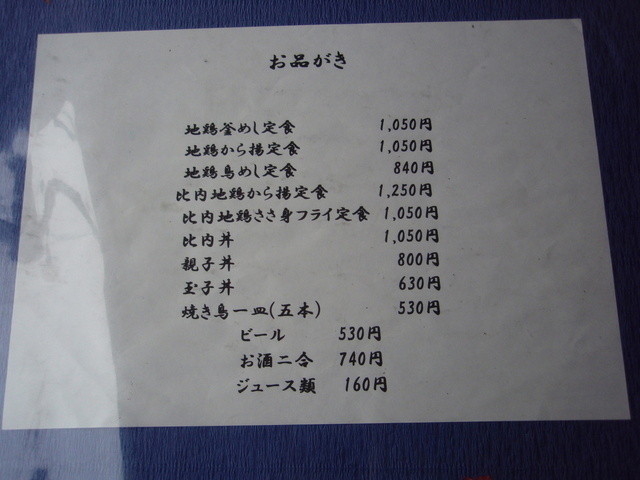 お品がき
地鶏釜めし定食 1,050円
地鶏から揚定食 1,050円
地鶏鳥めし定食 840円
比内地鶏から揚定食 1,250円
比内地鶏ささ身フライ定食 1,050円
比内丼 1,050円
親子丼 800円
玉子丼 630円
焼き鳥一皿(五本) 530円
ビール 530円
お酒二合 740円
ジュース類 160円